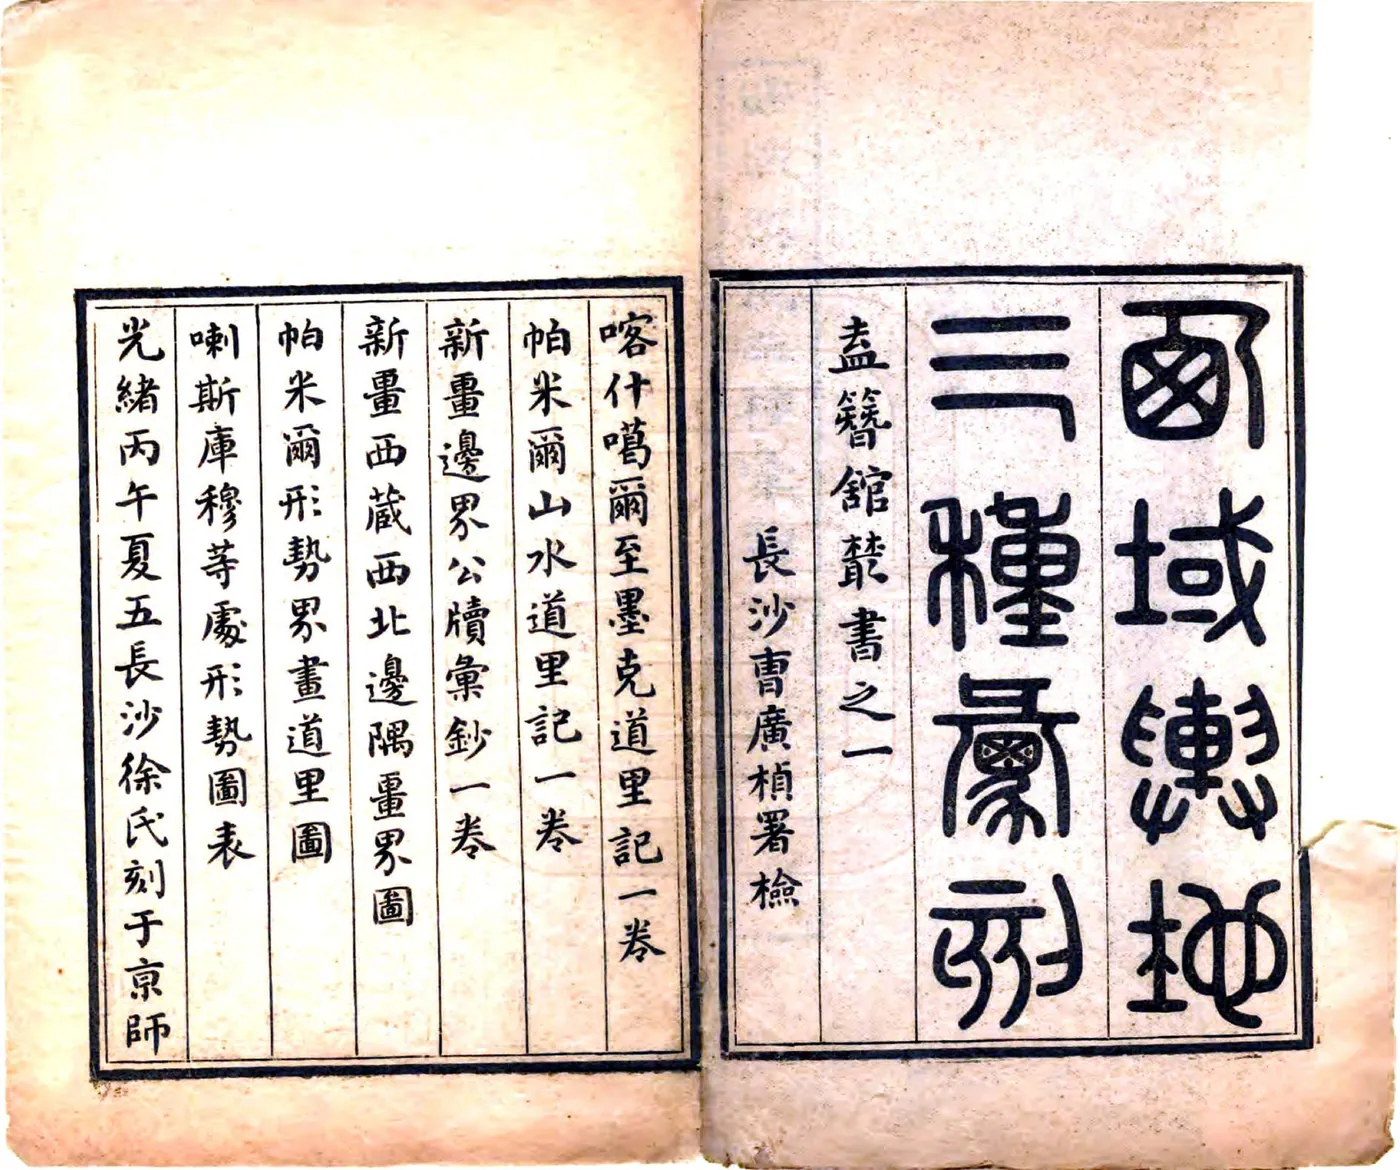 西域輿地
三種彙刻
盍簪館叢書之一
長沙曹廣楨署檢
喀什噶爾至墨克道里記一卷
帕米爾山水道里記一卷
新畺邊界公牘彙鈔一卷
新畺西藏西北邊隅畺界圖
帕米爾形勢界畫道里圖
喇斯庫穆等處形勢圖表
光緒丙午夏五長沙徐氏刻于京師